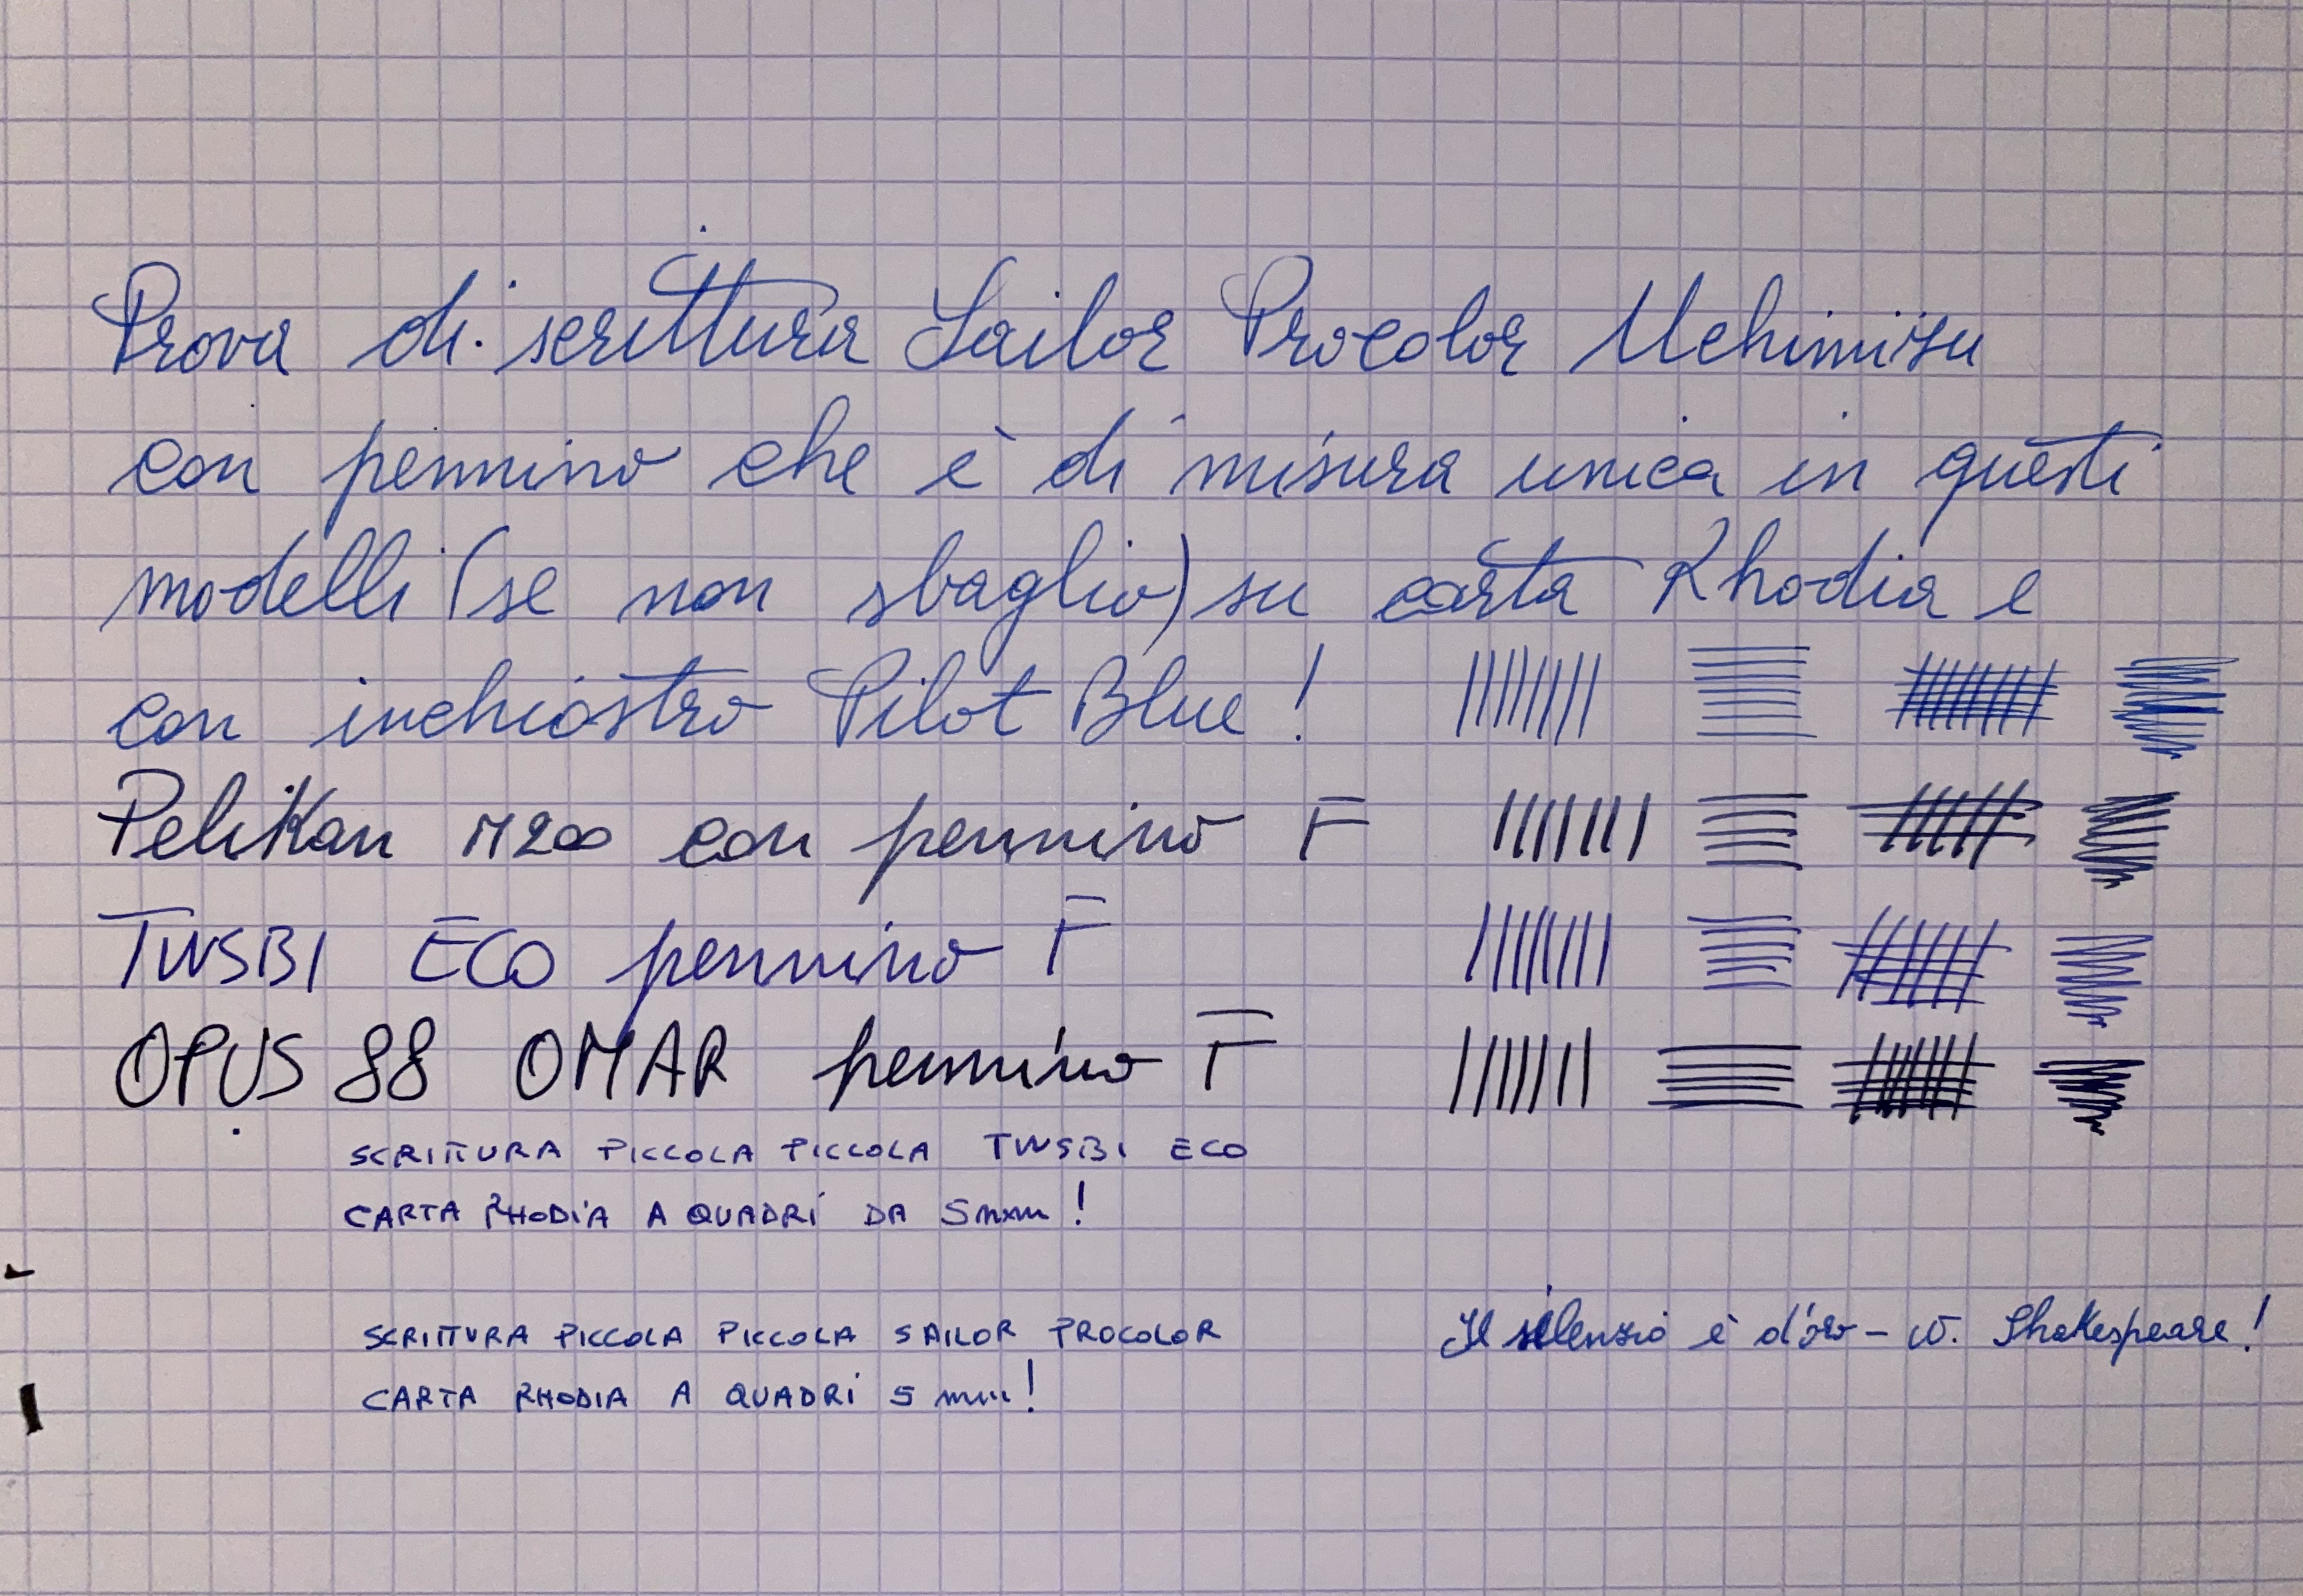 Prova di scrittura Sailor Procolor Uchimisu
con pennino che è di misura unica in questi
modelli (se non sbaglio) su carta Rhodia e
con inchiostro Pilot Blue!
Pelikan M200 con pennino F
TWSBI ECO pennino F
OPUS 88 OMAR pennino F
SCRITTURA PICCOLA PICCOLA TWSBI ECO
CARTA RHODIA A QUADRI DA 5mm!
SCRITTURA PICCOLA PICCOLA SAILOR PROCOLOR
CARTA RHODIA A QUADRI 5 mm!
Il silenzio è d'oro - W. Shakespeare!